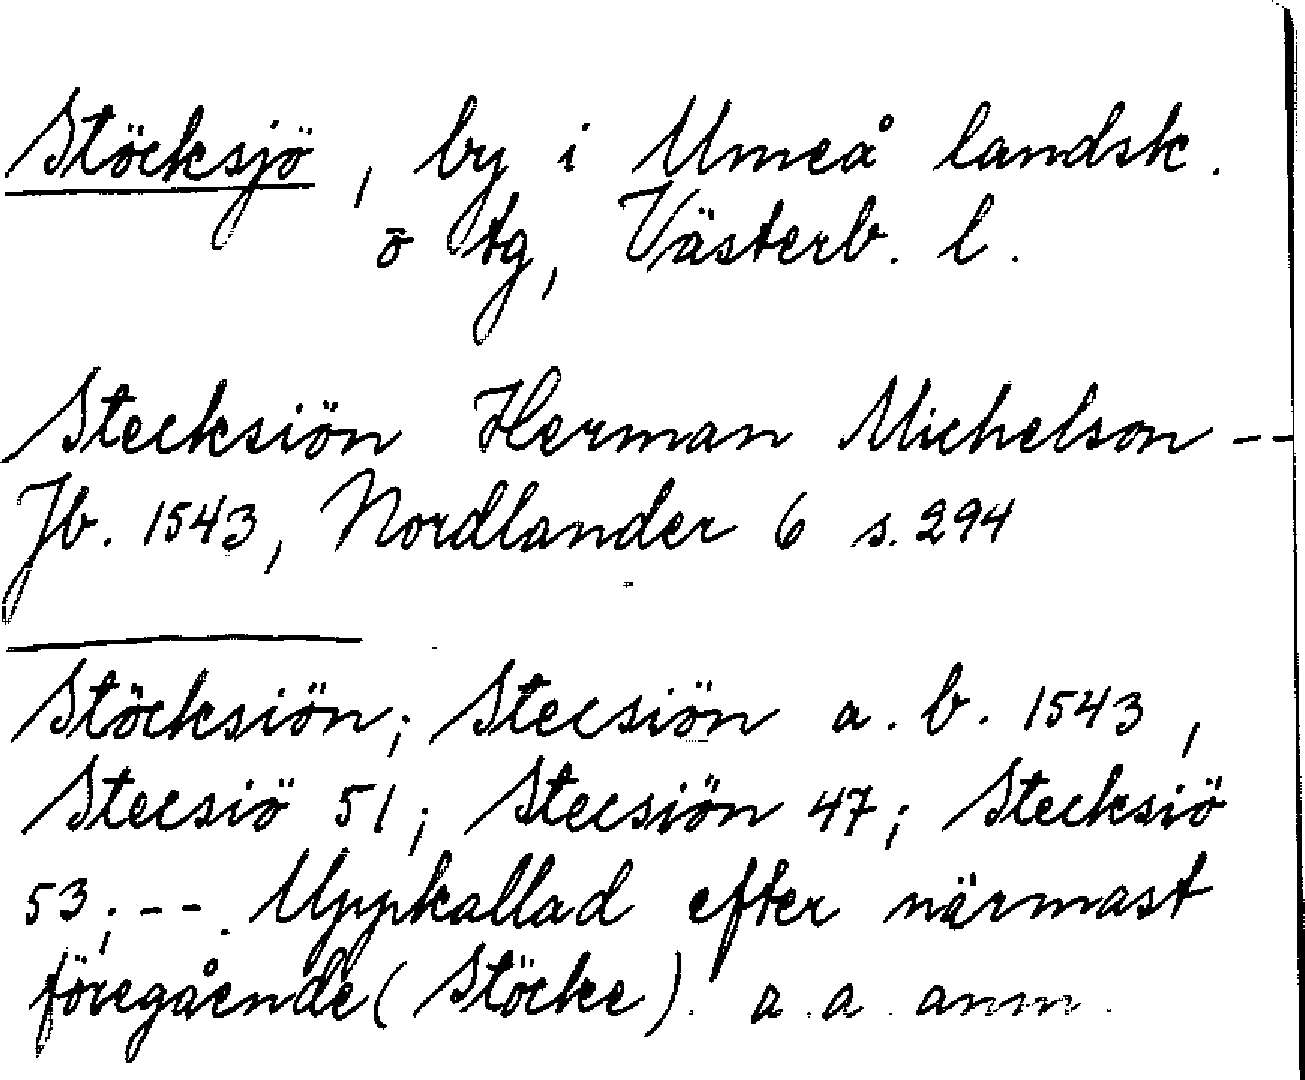 Stöcksjö, by i Umeå landsk.
o tg, Västerb. l.
Stecksiön Herman Michelson --
Jb. 1543, Nordlander 6 s. 294
Stöcksiön; Stecsiön a. b. 1543,
Stecsiö 51; Stecsiön 47; Stecksiö
53; --. Uppkallad efter närmast
föregående (Stöcke). a. a. anm.